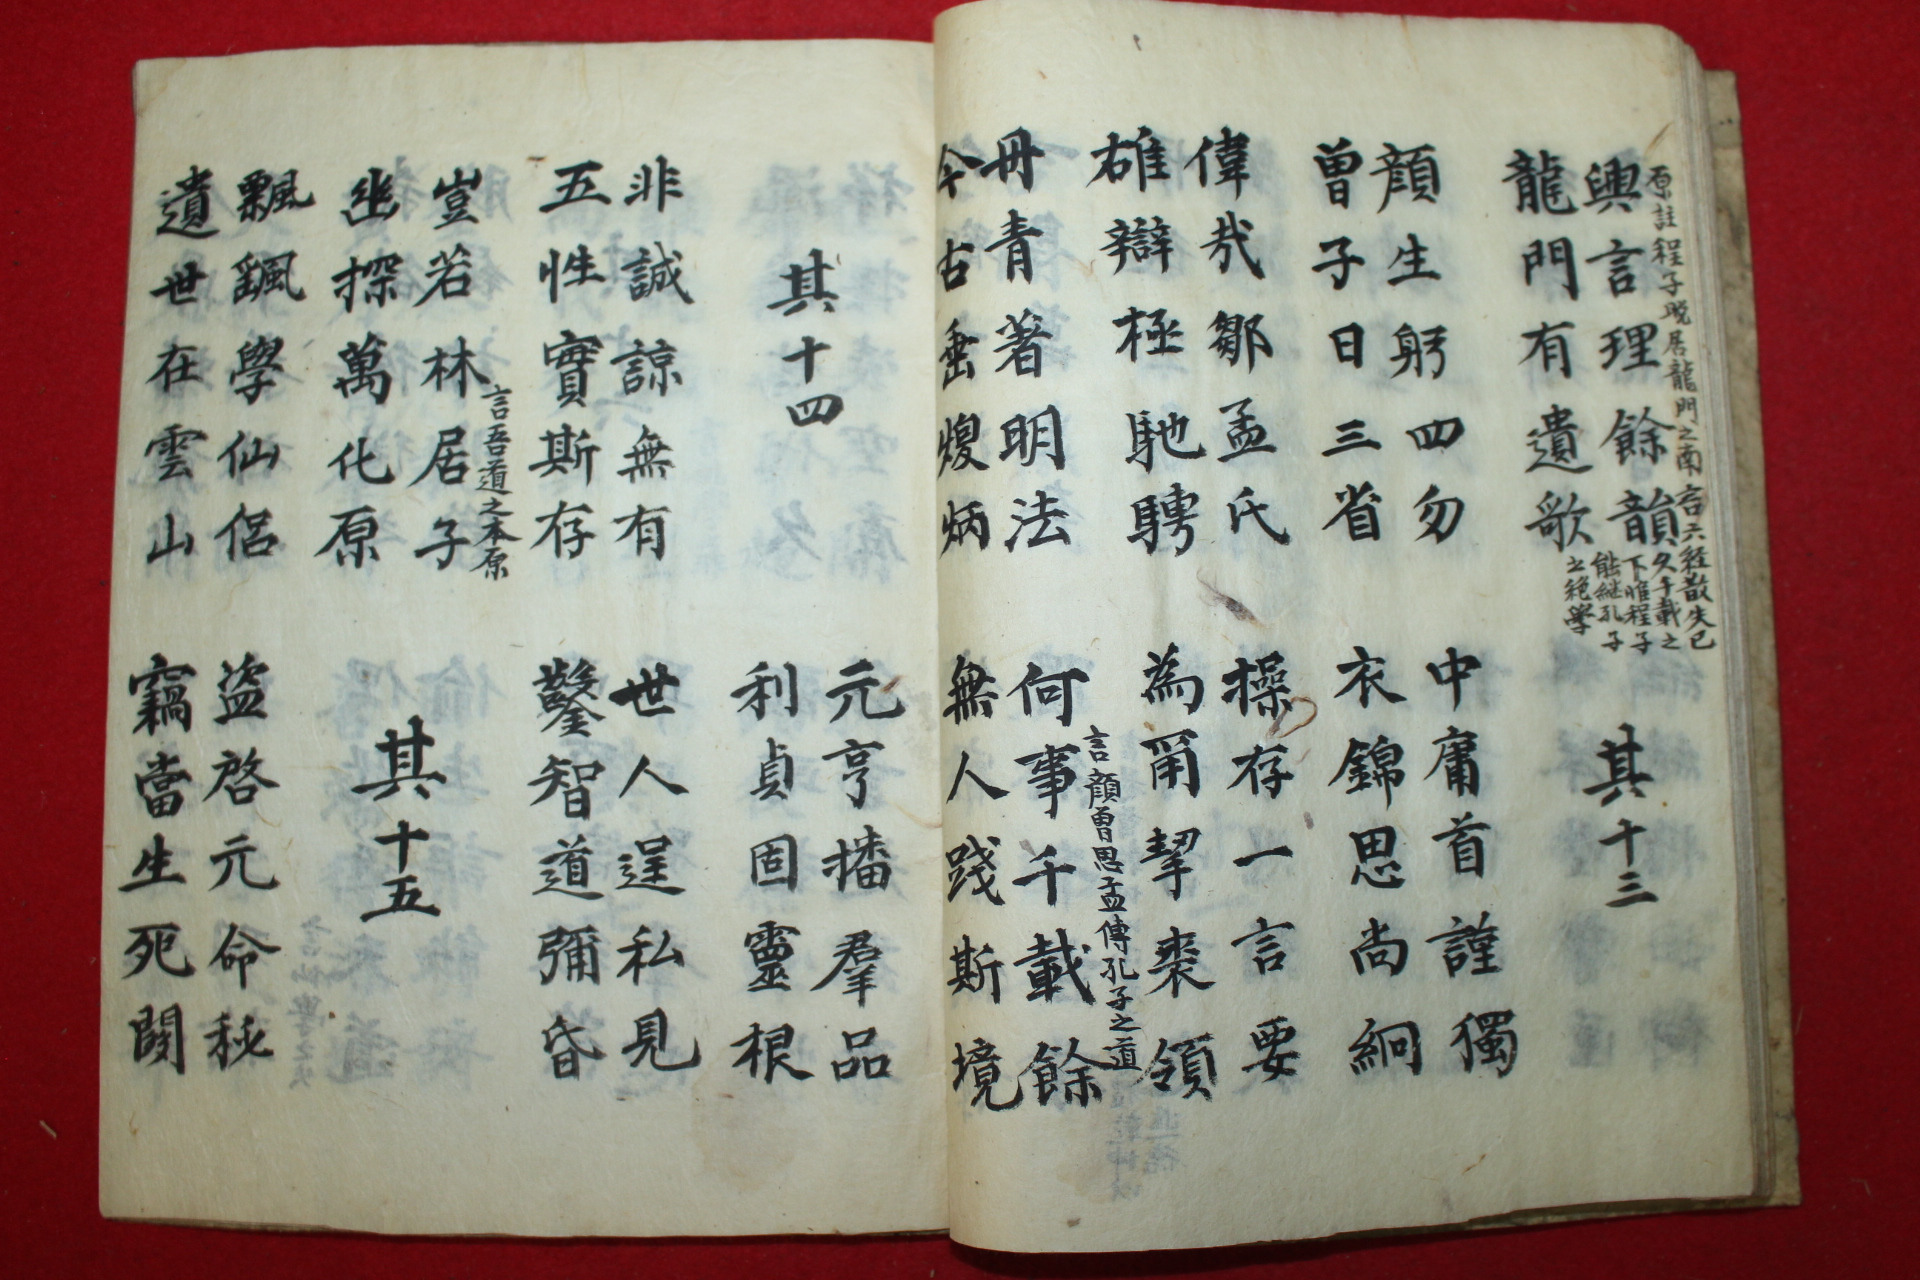 原註程子晩居龍門之南
興言理餘韻
龍門有遺歌
言六経散失已
久千載之
下惟程子
能継孔子
之絶學
其十三
顔生躬四勿
曾子日三省
中庸首謹獨
衣錦思尚絅
偉哉鄒孟氏
雄辯極馳騁
操存一言要
為爾挈裘領
丹青著明法
今古垂煥炳
言顔曾思孟傳孔子之道
何事千載餘
無人踐斯境
其十四
元亨播羣品
利貞固靈根
非誠諒無有
五性實斯存
世人逞私見
鑿智道彌昏
豈若林居子
幽探萬化原
言吾道之本原
其十五
飄颻學仙侶
遺世在雲山
盗啓元命秘
竊當生死関